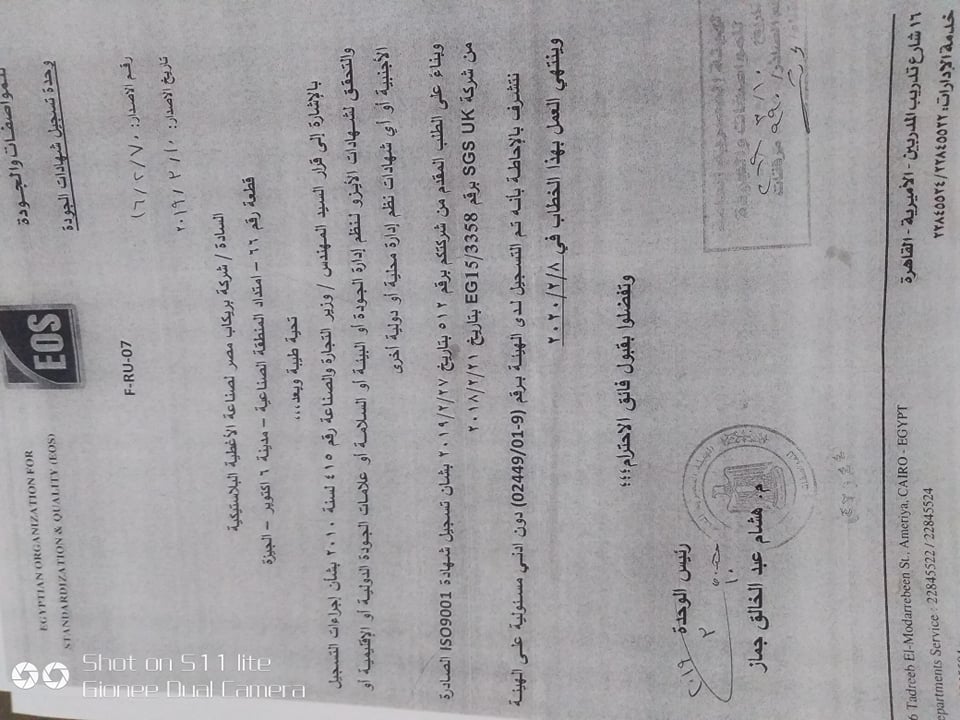 EGYPTIAN ORGANIZATION FOR
STANDARDIZATION & QUALITY (EOS)
EOS
للمواصفات والجودة
وحدة تسجيل شهادات الجودة
F-RU-07
رقم الاصدار:
تاريخ الاصدار:
السادة / شركة بريكاب مصر لصناعة الأغطية البلاستيكية
قطعة رقم ٦٦ – امتداد المنطقة الصناعية – مدينة ٦ اكتوبر – الجيزة
تحية طيبة وبعد،،،
بالإشارة إلى قرار السيد المهندس / وزير التجارة والصناعة رقم ٤١٥ لسنة ٢٠١٠ بشأن إجراءات التسجيل
والتحقق لشهادات الأيزو لنظم إدارة الجودة أو البيئة أو السلامة أو علامات الجودة الدولية أو الإقليمية أو
الأجنبية أو أي شهادات نظم إدارة محلية أو دولية أخرى
وبناءً على الطلب المقدم من شركتكم برقم ٥١٢ بتاريخ ٢٠١٩/٢/٢٧ بشأن تسجيل شهادة ISO9001 الصادرة
من شركة SGS UK برقم EG15/3358 بتاريخ ٢٠١٨/٢/٢١
نتشرف بالإحاطة بأنه تم التسجيل لدى الهيئة برقم (02449/01-9) دون ادنى مسئولية على الهيئة
وينتهي العمل بهذا الخطاب في ٢٠٢٠/٢/٨
وتفضلوا بقبول فائق الاحترام،،،
رئيس الوحدة
٢٠١٩
م. هشام عبد الخالق جماز
١٦ شارع تدريب المدربين - الأميرية - القاهرة
خدمة الإدارات: ٢٢٨٤٥٥٢٢/ ٢٢٨٤٥٥٢٤
6 Tadreeb El-Modarrebeen St., Ameriya, CAIRO - EGYPT
epartments Service : 22845522 / 22845524
Shot on S11 lite
Gionee Dual Camera